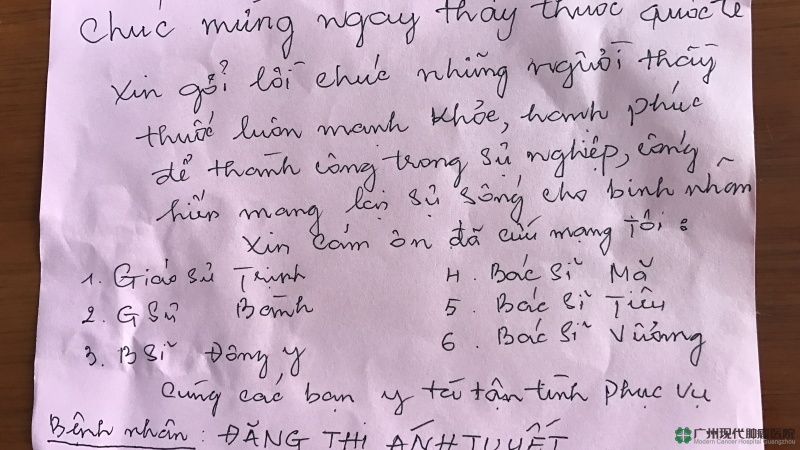 Chúc mừng ngay thầy thuốc quốc tế
Xin gởi lời chúc những người thầy
thuốc luôn manh khỏe, hanh phúc
để thành công trong sứ nghiệp, cống
hiếp mang lại sử sống cho binh nhân
Xin cám ơn đã cứu mạng tôi :
1. Giáo sử Trịnh
2. G Sử Bành
3. B Sĩ Đông y
4. Bác Sĩ Mã
5 Bác Sĩ Tiêu
6 Bác Sĩ Vương
Cùng các bạn y tá tận tình phục vụ
Bệnh nhân : ĐĂNG THỊ ÁNH TUYẾT
广州现代肿瘤医院
Modern Cancer Hospital Guangzhou